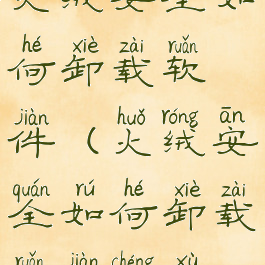 火绒安全如
hé xiè zài ruǎn
何卸载软
jiàn huǒ róng ān
件（火绒安
quán rú hé xiè zài
全如何卸载
ruǎn jiàn chéng xù